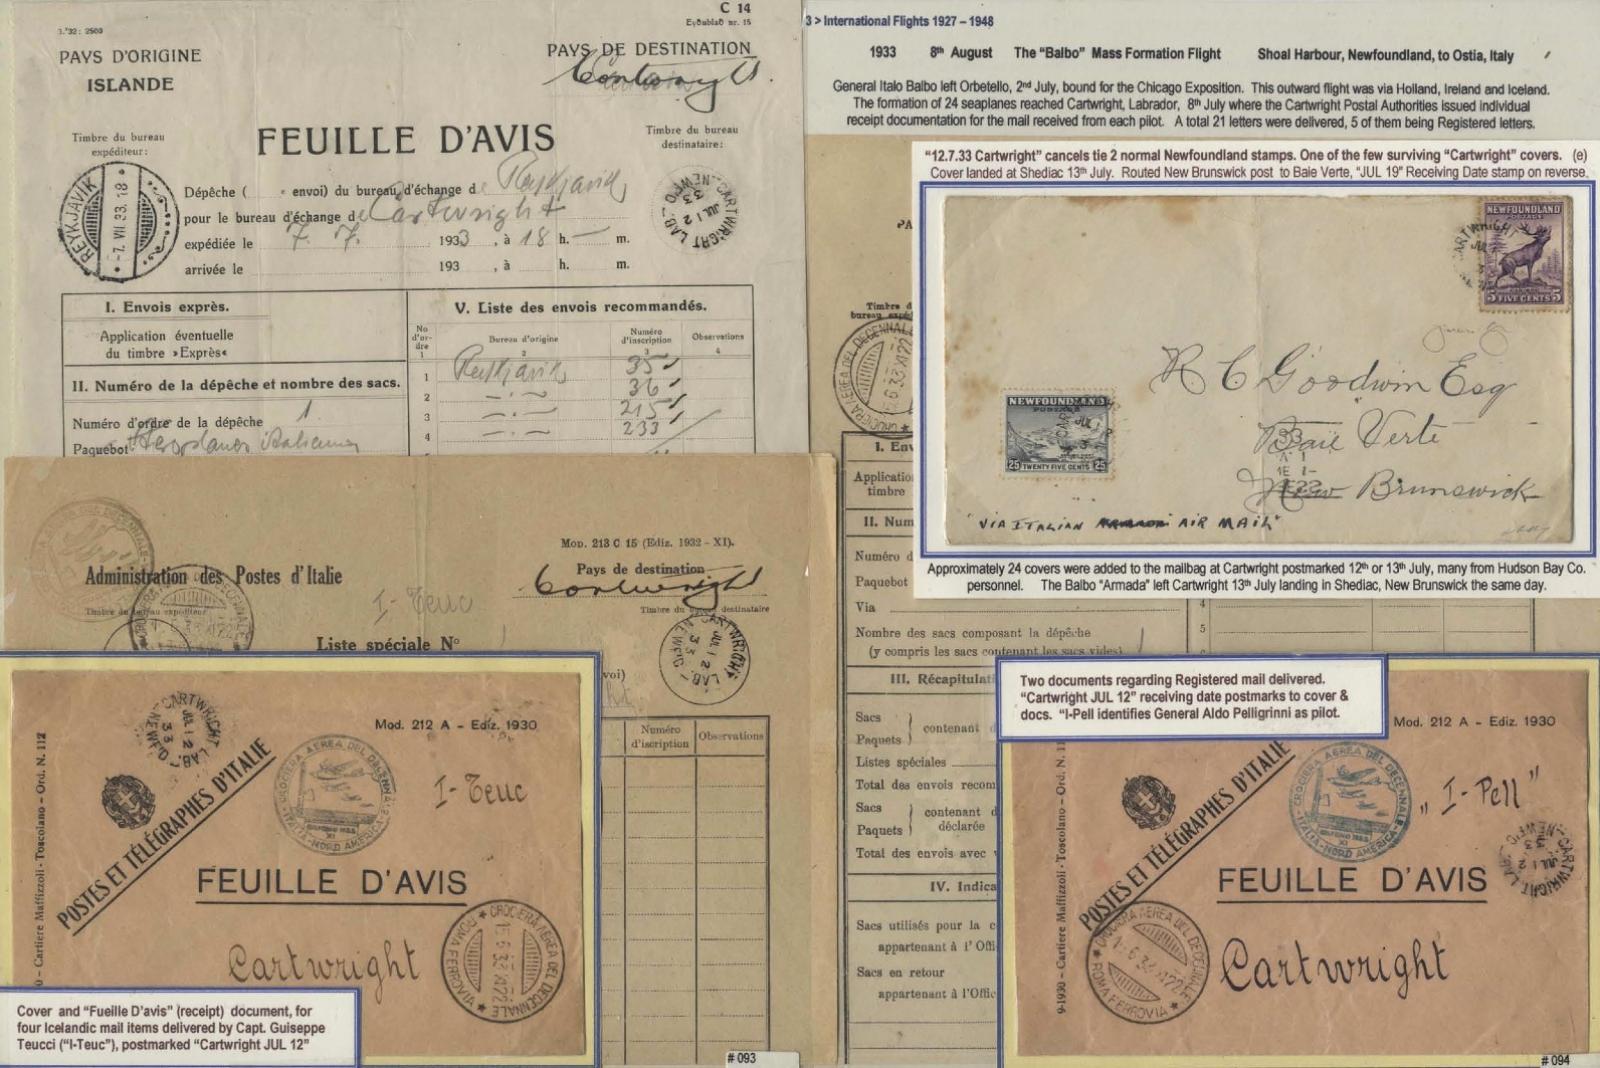 1.°32: 2500
C 14
Eyðublað nr. 15
PAYS D'ORIGINE
ISLANDE
PAYS DE DESTINATION
Cartwright
FEUILLE D'AVIS
Timbre du bureau
expéditeur:
Timbre du bureau
destinataire:
REYKJAVIK
-7. VII 33. 18
CARTWRIGHT LAB
JUL 12
33
NEWF'D
Dépêche ( e envoi) du bureau d'échange de Reykjavik
pour le bureau d'échange de Cartwright
expédiée le 7. 7. 1933, à 18 h. — m.
arrivée le 193 , à h. m.
I. Envois exprès.
Application éventuelle
du timbre »Exprès«
II. Numéro de la dépêche et nombre des sacs.
Numéro d'ordre de la dépêche 1
Paquebot
V. Liste des envois recommandés.
No d'or-dre
1
Bureau d'origine
2
Numéro d'inscription
3
Observations
4
1 Reykjavik 35
2 —·— 36
3 —·— 215
4 —·— 233
Administration des Postes d'Italie
Mod. 213 C 15 (Ediz. 1932 - XI).
Pays de destination
Cartwright
Timbre du bureau expéditeur
Timbre du bureau destinataire
I-Teuc
Liste spéciale N°
CARTWRIGHT LAB
JUL 12
33
NEWF'D
voi)
Numéro
d'iscription
Observations
0 - Cartiere Maffizzoli - Toscolano - Ord. N. 112
CARTWRIGHT LAB
JUL 12
33
Mod. 212 A - Ediz. 1930
POSTES ET TÉLÉGRAPHES D'ITALIE
CROCIERA AEREA DEL DECENNALE
ITALIA-NORD AMERICA
I-Teuc
FEUILLE D'AVIS
Cartwright
CROCIERA AEREA DEL DECENNALE
ROMA FERROVIA
Cover and "Fueille D'avis" (receipt) document, for
four Icelandic mail items delivered by Capt. Guiseppe
Teucci ("I-Teuc"), postmarked "Cartwright JUL 12"
# 093
3 > International Flights 1927 – 1948
1933 8th August The "Balbo" Mass Formation Flight Shoal Harbour, Newfoundland, to Ostia, Italy
General Italo Balbo left Orbetello, 2nd July, bound for the Chicago Exposition. This outward flight was via Holland, Ireland and Iceland.
The formation of 24 seaplanes reached Cartwright, Labrador, 8th July where the Cartwright Postal Authorities issued individual
receipt documentation for the mail received from each pilot. A total 21 letters were delivered, 5 of them being Registered letters.
"12.7.33 Cartwright" cancels tie 2 normal Newfoundland stamps. One of the few surviving "Cartwright" covers. (e)
Cover landed at Shediac 13th July. Routed New Brunswick post to Baie Verte, "JUL 19" Receiving Date stamp on reverse.
NEWFOUNDLAND
POSTAGE
5 FIVE CENTS 5
NEWFOUNDLAND
POSTAGE
25 TWENTY FIVE CENTS 25
R C Goodwin Esq
Baie Verte
New Brunswick
"VIA ITALIAN AIR MAIL"
Approximately 24 covers were added to the mailbag at Cartwright postmarked 12th or 13th July, many from Hudson Bay Co.
personnel. The Balbo "Armada" left Cartwright 13th July landing in Shediac, New Brunswick the same day.
PA
Timbre d
bureau expé
I. Env
Applicatio
timbre
II. Num
Numéro d
Paquebot
Via
Nombre des sacs composant la dépêche 1
(y compris les sacs contenant les sacs vides)
4
5
III. Récapitulati
Sacs
Paquets } contenant d
Listes spéciales
Total des envois recom
Sacs
Paquets } contenant d
déclarée
Total des envois avec v
IV. Indica
Sacs utilisés pour la c
appartenant à l'Offi
Sacs en retour
appartenant à l'Offic
Two documents regarding Registered mail delivered.
"Cartwright JUL 12" receiving date postmarks to cover &
docs. "I-Pell identifies General Aldo Pelligrinni as pilot.
9-1930 - Cartiere Maffizzoli - Toscolano - Ord. N. 11
Mod. 212 A - Ediz. 1930
POSTES ET TÉLÉGRAPHES D'ITALIE
CROCIERA AEREA DEL DECENNALE
ITALIA-NORD AMERICA
„ I-Pell "
FEUILLE D'AVIS
Cartwright
CROCIERA AEREA DEL DECENNALE
ROMA FERROVIA
# 094